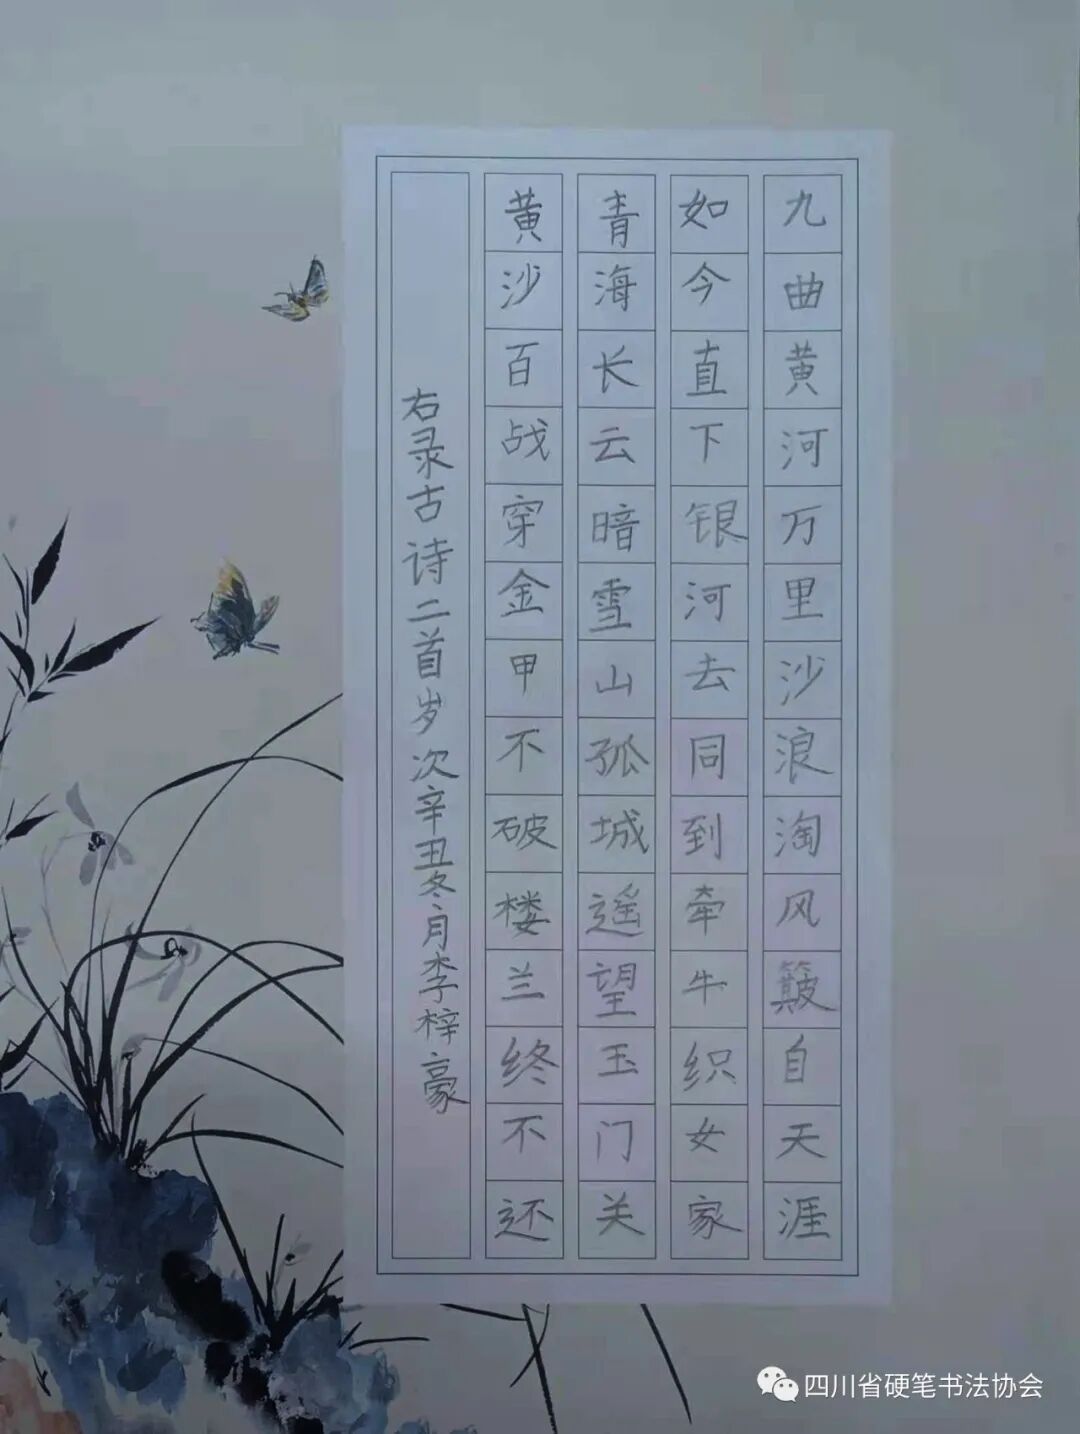 九曲黄河万里沙浪淘风簸自天涯
如今直下银河去同到牵牛织女家
青海长云暗雪山孤城遥望玉门关
黄沙百战穿金甲不破楼兰终不还
右录古诗二首岁次辛丑冬月李梓豪
四川省硬笔书法协会